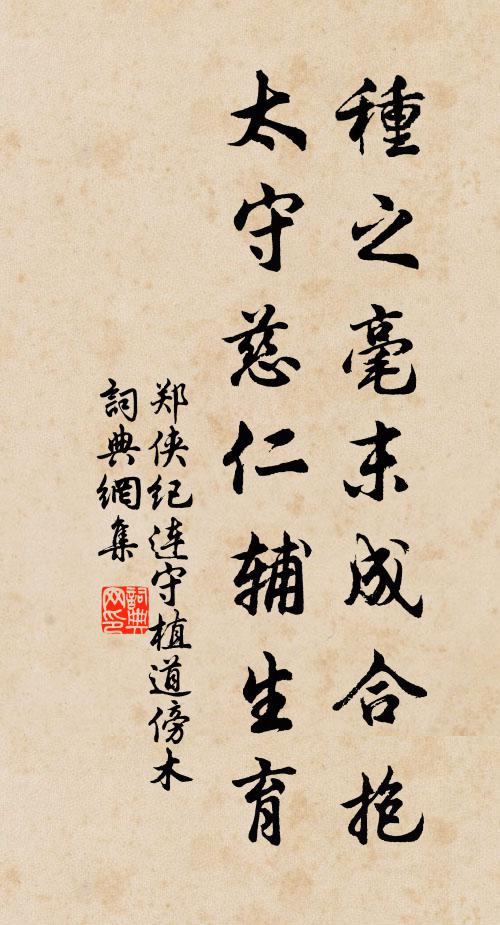 種之毫末成合抱
太守慈仁辅生育
郑侠纪连守植道傍木
詞典網集
詞典网印